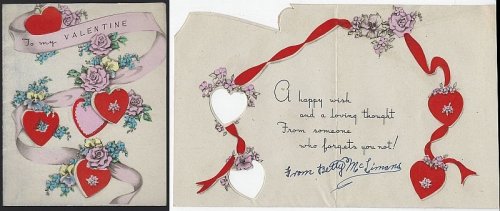 To my VALENTINE
A happy wish
and a loving thought
From someone
who forgets you not!
From Betty McLimans